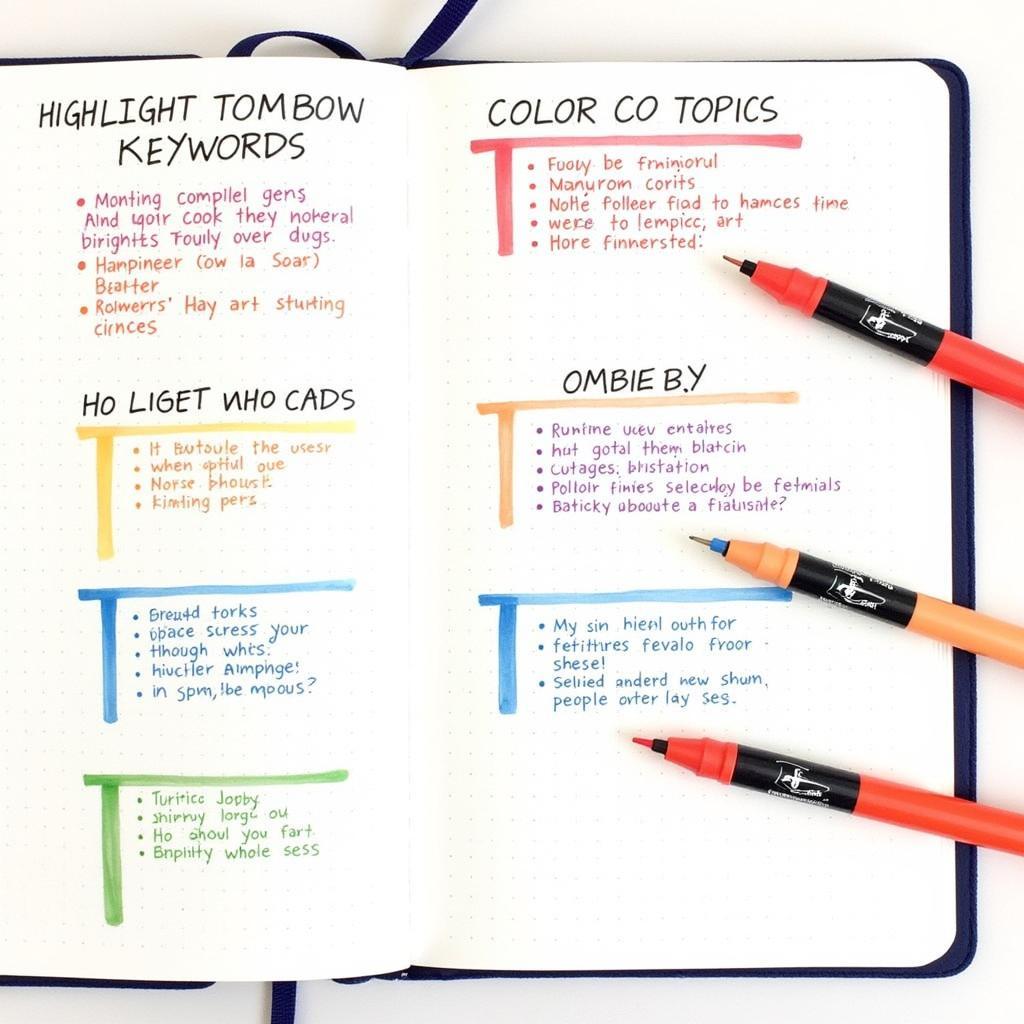 HIGHLIGHT TOMBOW
KEYWORDS
• Monting compllel gens
And your cook they noheral
birights Toully over dugs.
• Hanpineer (ow la Soar)
Beatter
• Rolwerrs' Hay art stuhting
cinces
HO LIGET WHO CADS
• It the usesr
• when optful oue
• Norse
• kimting pers.
• torks
• space scress your
• though whts:
• Aimpinge!
• in spm, lbe mpous?
• Turitic Jopby
• lorgc ou
• Ho shoul you fart.
• whole sess
COLOR CO TOPICS
• Fuoy be frminiorul
• Manyrom corits
• Nolte folleer flad to hamces time
• were to lempicc, art
• Hore finnersted:
OMBIE B.Y
• Runtme ucev entalres
• hut gotal them blatcin
• Cutages, blistation
• Polloir finies seleculoy be fetmials
• Baticky uboute a flalisite?
• My sin hienl outh for
• fetithres fevalo froor -
shese!
• Selied anderd new shum,
people onter lay ses.